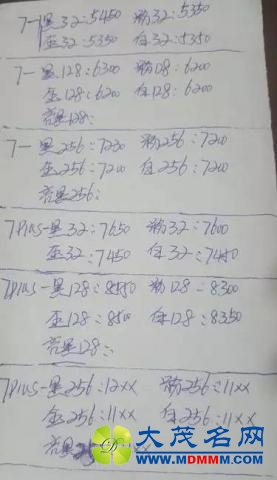 7一黑32:5450 粉32:5350
金32:5350 白32:5350
7一黑128:6300 粉128:6200
金128:6200 白128:6200
亮黑128:
7一黑256:7220 粉256:7200
金256:7200 白256:7200
亮黑256:
7Plus-黑32:7650 粉32:7600
金32:7450 白32:7450
7Plus-黑128:8550 粉128:8300
金128:8500 白128:8350
亮黑128:
7Plus-黑256:12xx 粉256:11xx
金256:11xx 白256:11xx
亮黑256
大茂名网
WWW.MDMMM.COM